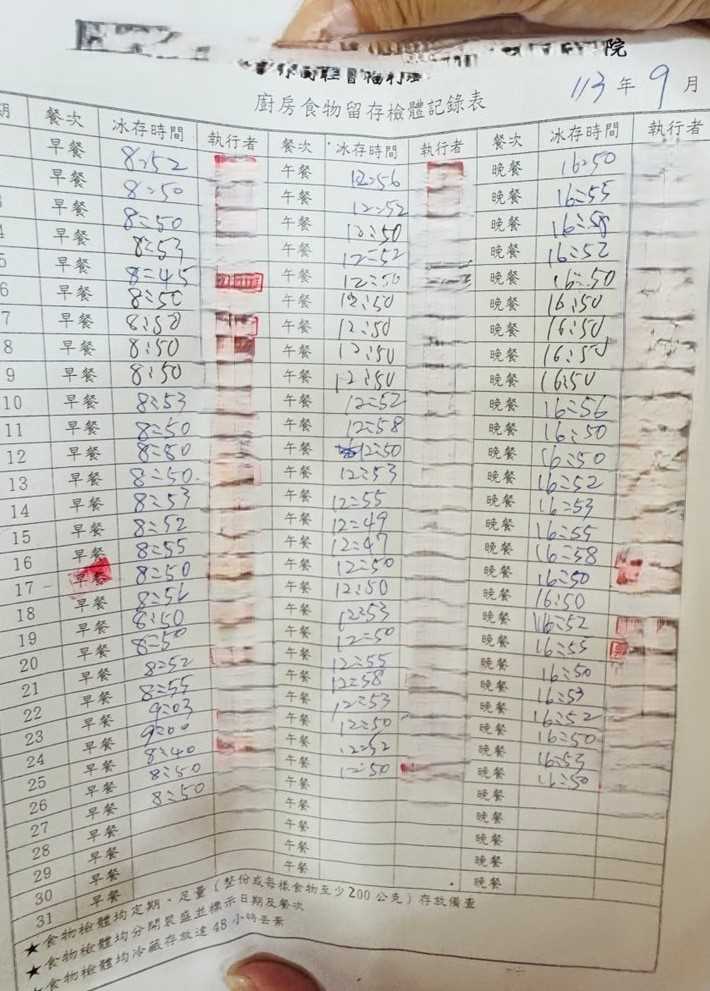 院
廚房食物留存檢體記錄表
113 年 9 月
期 餐次 冰存時間 執行者 餐次 冰存時間 執行者 餐次 冰存時間 執行者
早餐 8:52 午餐 12:56 晚餐 16:50
早餐 8:50 午餐 12:52 晚餐 16:55
3 早餐 8:50 午餐 12:50 晚餐 16:58
4 早餐 8:53 午餐 12:52 晚餐 16:52
5 早餐 8:45 午餐 12:50 晚餐 16:50
6 早餐 8:50 午餐 12:50 晚餐 16:50
7 早餐 8:50 午餐 12:50 晚餐 16:50
8 早餐 8:50 午餐 12:50 晚餐 16:50
9 早餐 8:50 午餐 12:50 晚餐 16:50
10 早餐 8:53 午餐 12:52 晚餐 16:56
11 早餐 8:50 午餐 12:58 晚餐 16:50
12 早餐 8:50 午餐 12:50 晚餐 16:50
13 早餐 8:50 午餐 12:53 晚餐 16:52
14 早餐 8:53 午餐 12:55 晚餐 16:53
15 早餐 8:52 午餐 12:49 晚餐 16:55
16 早餐 8:55 午餐 12:47 晚餐 16:58
17 早餐 8:50 午餐 12:50 晚餐 16:50
18 早餐 8:56 午餐 12:50 晚餐 16:50
19 早餐 8:50 午餐 12:53 晚餐 16:52
20 早餐 8:50 午餐 12:50 晚餐 16:55
21 早餐 8:52 午餐 12:55 晚餐 16:50
22 早餐 8:55 午餐 12:58 晚餐 16:53
23 早餐 9:03 午餐 12:53 晚餐 16:52
24 早餐 9:00 午餐 12:50 晚餐 16:50
25 早餐 8:40 午餐 12:52 晚餐 16:53
26 早餐 8:50 午餐 12:50 晚餐 16:50
27 早餐 8:50 午餐 晚餐
28 早餐 午餐 晚餐
29 早餐 午餐 晚餐
30 早餐 午餐 晚餐
31 早餐 午餐 晚餐
★食物檢體均定期、足量(整份或每樣食物至少200公克)存放備查
★食物檢體均分開裝盛並標示日期及餐次
食物檢體均冷藏存放達48小時丟棄